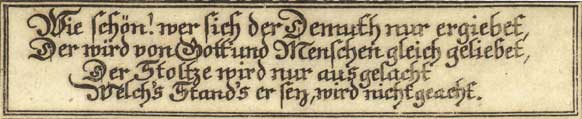 Wie schön! wer sich der Demuth nur ergiebet,
Der wird von Gott und Menschen gleich geliebet,
Der Stoltze wird nur ausgelacht
Welch's Stand's er sey, wird nicht geacht.